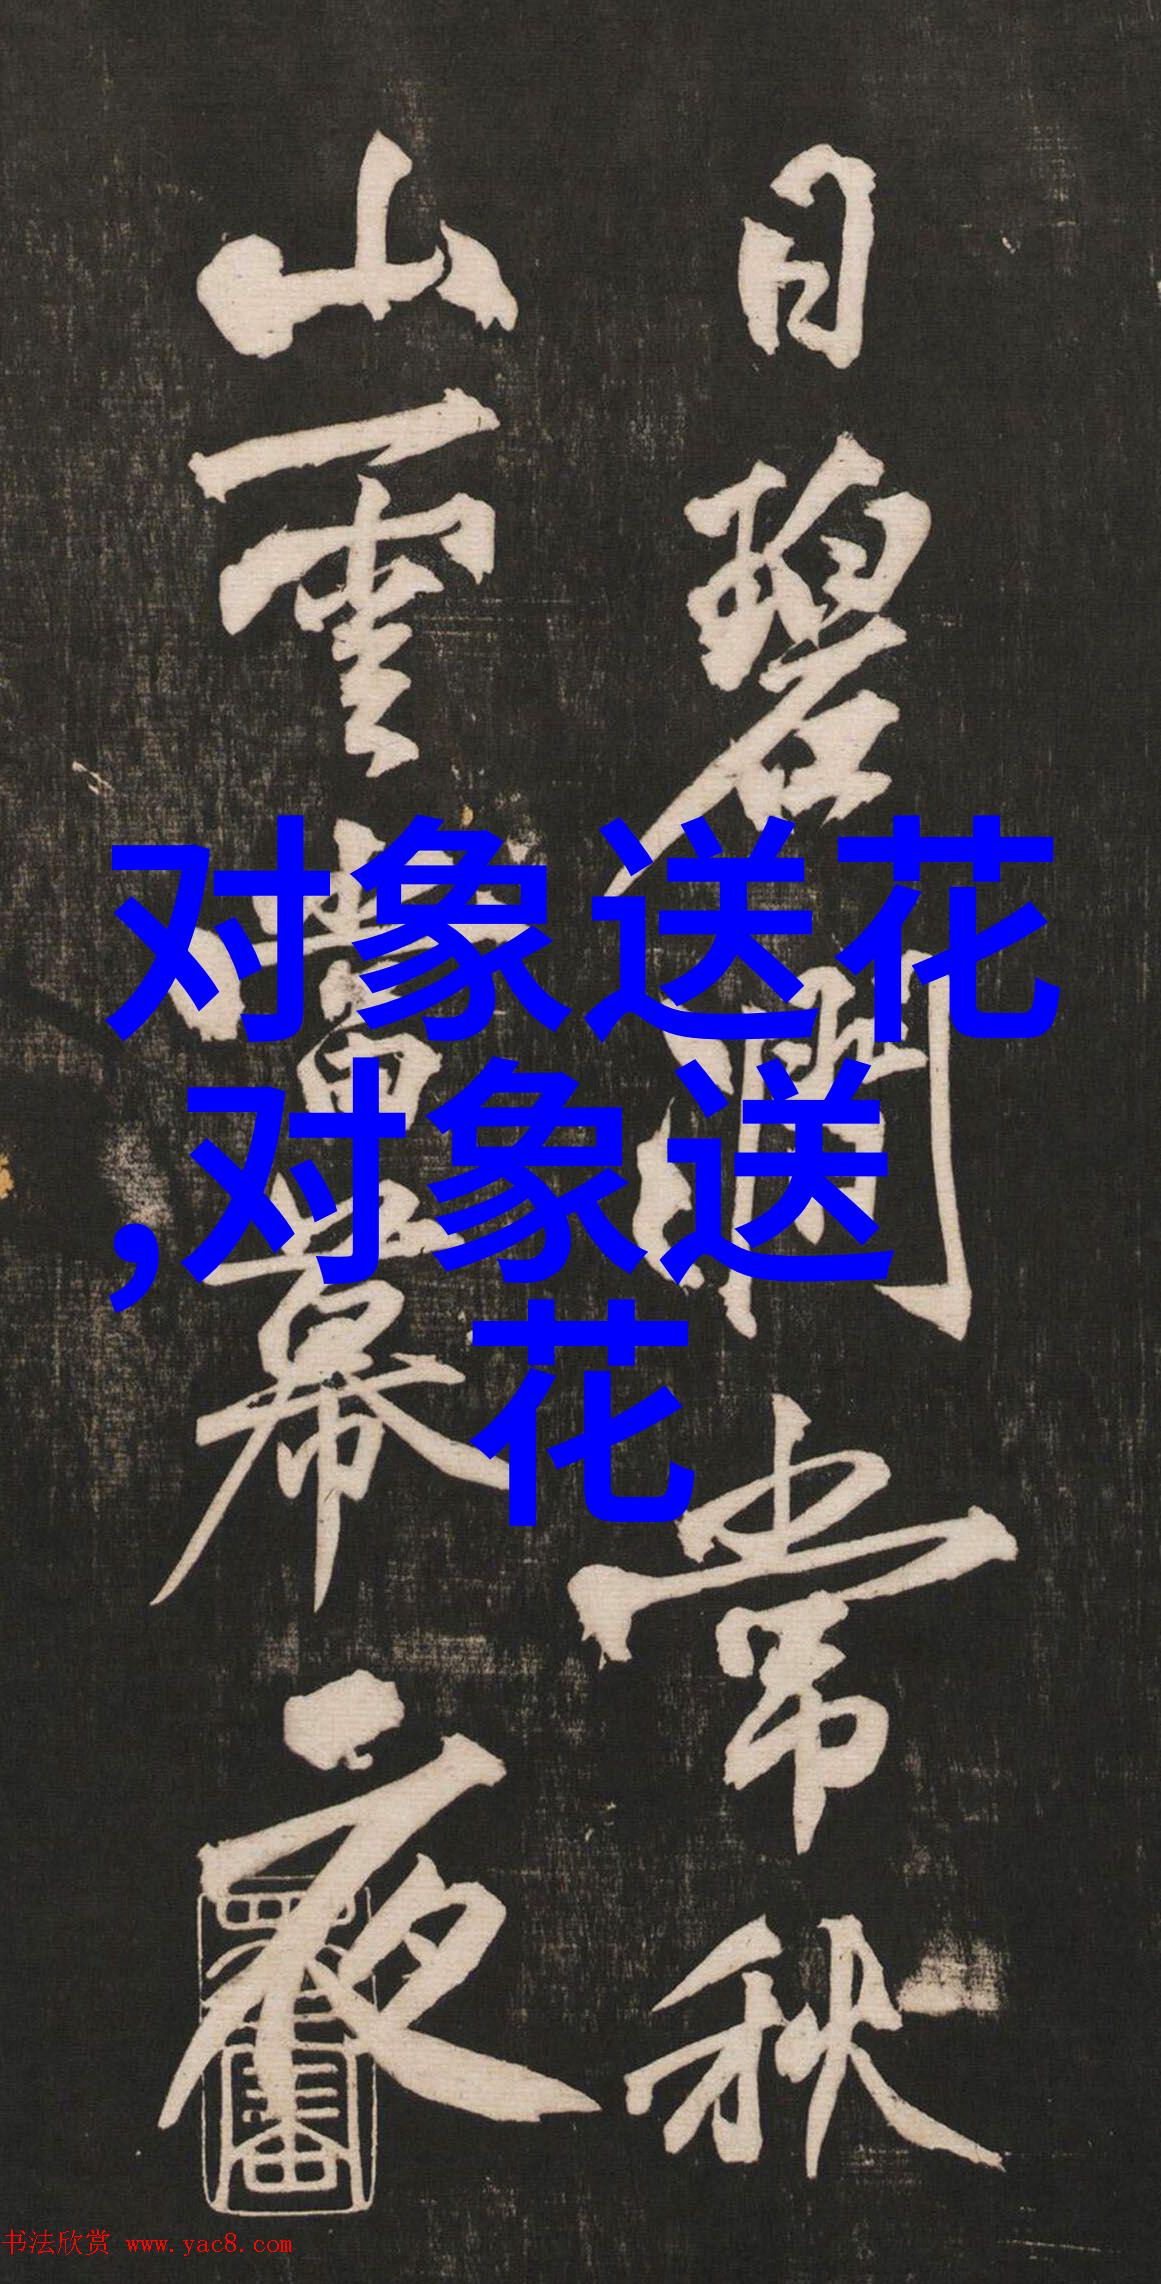 日碧澗常秋
山雲當幕夜
对象送花
,对象送
花
书法欣赏 www.yac8.com